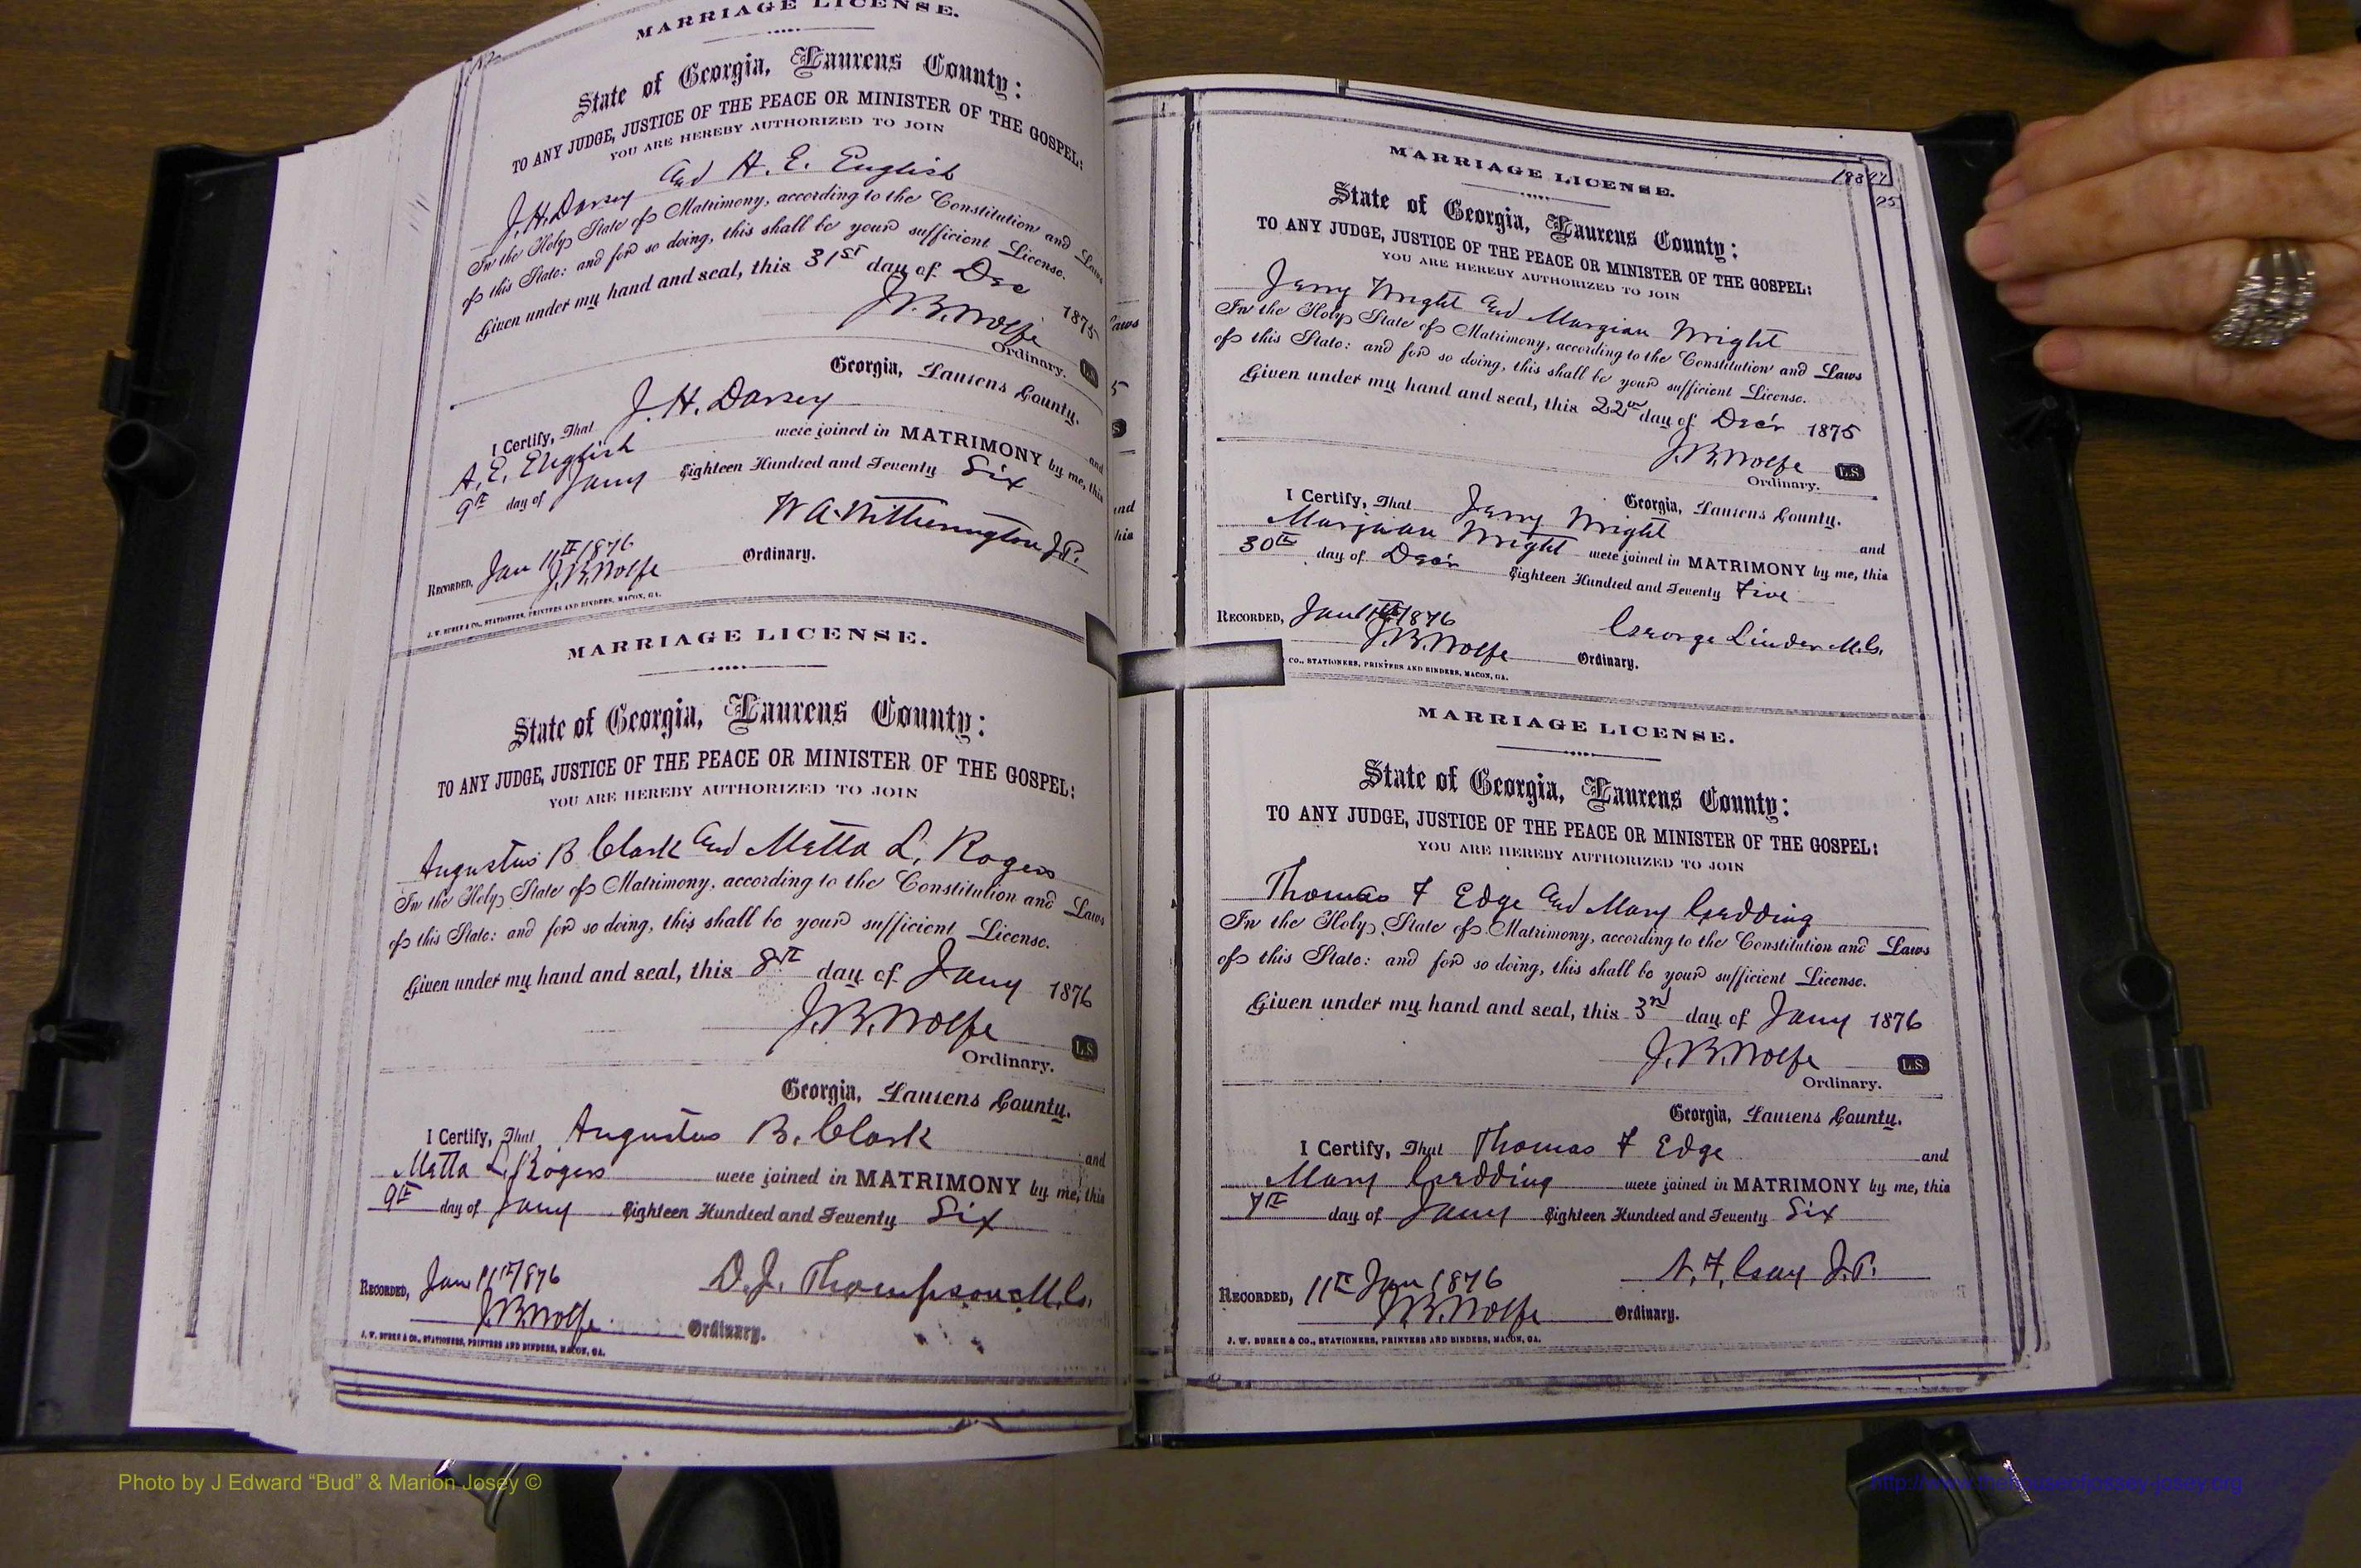 MARRIAGE LICENSE.
State of Georgia, Laurens County:
TO ANY JUDGE, JUSTICE OF THE PEACE OR MINISTER OF THE GOSPEL:
YOU ARE HEREBY AUTHORIZED TO JOIN
J. H. Dorsey and A. E. English
In the Holy State of Matrimony, according to the Constitution and Laws
of this State: and for so doing, this shall be your sufficient License.
Given under my hand and seal, this 31st day of Dec 1875
J. B. Wolfe
Ordinary. L.S.
Georgia, Laurens County.
I Certify, That J. H. Dorsey and
A. E. English were joined in MATRIMONY by me, this
9th day of Jany Eighteen Hundred and Seventy Six
W A Witherington J.P.
RECORDED, Jan 11th 1876
J. B. Wolfe Ordinary.
J. W. BURKE & CO., STATIONERS, PRINTERS AND BINDERS, MACON, GA.
MARRIAGE LICENSE.
State of Georgia, Laurens County:
TO ANY JUDGE, JUSTICE OF THE PEACE OR MINISTER OF THE GOSPEL:
YOU ARE HEREBY AUTHORIZED TO JOIN
Augustus B Clark and Matta L. Rogers
In the Holy State of Matrimony, according to the Constitution and Laws
of this State: and for so doing, this shall be your sufficient License.
Given under my hand and seal, this 8th day of Jany 1876
J. B. Wolfe
L.S.
Ordinary.
Georgia, Laurens County.
I Certify, That Augustus B. Clark and
Matta L. Rogers were joined in MATRIMONY by me, this
9th day of Jany Eighteen Hundred and Seventy Six
D. J. Thompson M.G.
RECORDED, Jan 11th 1876
J. B. Wolfe Ordinary.
J. W. BURKE & CO., STATIONERS, PRINTERS AND BINDERS, MACON, GA.
MARRIAGE LICENSE.
State of Georgia, Laurens County:
TO ANY JUDGE, JUSTICE OF THE PEACE OR MINISTER OF THE GOSPEL:
YOU ARE HEREBY AUTHORIZED TO JOIN
Jerry Wright and Margian Wright
In the Holy State of Matrimony, according to the Constitution and Laws
of this State: and for so doing, this shall be your sufficient License.
Given under my hand and seal, this 22nd day of Decr 1875
J. B. Wolfe L.S.
Ordinary.
Georgia, Laurens County.
I Certify, That Jerry Wright and
Marjian Wright were joined in MATRIMONY by me, this
30th day of Decr Eighteen Hundred and Seventy Five
George Linder M.G.
RECORDED, Jan 1876
J. B. Wolfe Ordinary.
CO., STATIONERS, PRINTERS AND BINDERS, MACON, GA.
MARRIAGE LICENSE.
State of Georgia, Laurens County:
TO ANY JUDGE, JUSTICE OF THE PEACE OR MINISTER OF THE GOSPEL:
YOU ARE HEREBY AUTHORIZED TO JOIN
Thomas F Edge and Mary Gredding
In the Holy State of Matrimony, according to the Constitution and Laws
of this State: and for so doing, this shall be your sufficient License.
Given under my hand and seal, this 3rd day of Jany 1876
J. B. Wolfe L.S.
Ordinary.
Georgia, Laurens County.
I Certify, That Thomas F Edge and
Mary Gredding were joined in MATRIMONY by me, this
7th day of Jany Eighteen Hundred and Seventy Six
N. F. Gay J.P.
RECORDED, 11th Jan 1876
J. B. Wolfe Ordinary.
J. W. BURKE & CO., STATIONERS, PRINTERS AND BINDERS, MACON, GA.
Photo by J Edward “Bud” & Marion Josey ©
http://www.thehouseofjossey-josey.org